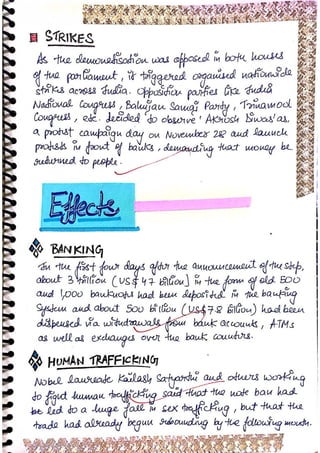 STRIKES
As the demonetisation was opposed in both houses
of the parliament, it triggered organised nationwide
strikes across India. Opposition parties like India
National Congress, Bahujan Samaj Party, Trinamool
Congress, etc. decided to observe 'Akrosh Diwas' as
a protest campaign day on November 28 and launch
protests in front of banks, demanding that money be
returned to people.
Effects
BANKING
In the first four days after the announcement of the step,
about 3 trillion (US$ 47 billion) in the form of old 500
and 1,000 banknotes had been deposited in the banking
system and about 500 billion (US$7.8 billion) had been
dispensed via withdrawals from bank accounts, ATMs
as well as exchanges over the bank counters.
HUMAN TRAFFICKING
Nobel laureate Kailash Satyarthi and others working
to fight human trafficking said that the note ban had
be led to a huge fall in sex trafficking, but that the
trade had already begun rebounding by the following month.